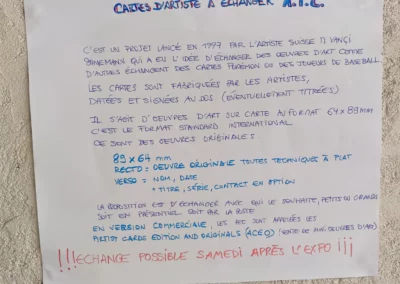 CARTES D'ARTISTE À ÉCHANGER A.T.C.
C'EST UN PROJET LANCÉ EN 1997 PAR L'ARTISTE SUISSE M VANÇI
STIRNEMANN QUI A EU L'IDÉE D'ÉCHANGER DES OEUVRES D'ART COMME
D'AUTRES ÉCHANGENT DES CARTES POKÉMON OU DES JOUEURS DE BASEBALL
LES CARTES SONT FABRIQUÉES PAR LES ARTISTES,
DATÉES ET SIGNÉES AU DOS (ÉVENTUELLEMENT TITRÉES)
IL S'AGIT D'OEUVRES D'ART SUR CARTE AU FORMAT 64 x 89 MM
C'EST LE FORMAT STANDARD INTERNATIONAL
CE SONT DES OEUVRES ORIGINALES :
89 x 64 mm
RECTO = OEUVRE ORIGINALE TOUTES TECHNIQUES À PLAT
VERSO = NOM, DATE
+ TITRE, SÉRIE, CONTACT EN OPTION
LA PROPOSITION EST D'ÉCHANGER AVEC QUI LE SOUHAITE, PETITS OU GRANDS
SOIT EN PRÉSENTIEL SOIT PAR LA POSTE
EN VERSION COMMERCIALE, LES ATC SONT APPELÉES LES
ARTIST CARDS EDITION AND ORIGINALS (ACEO) (VENTE DE MINI OEUVRES D'ART)
!!! ECHANGE POSSIBLE SAMEDI APRÈS L'EXPO ¡¡¡